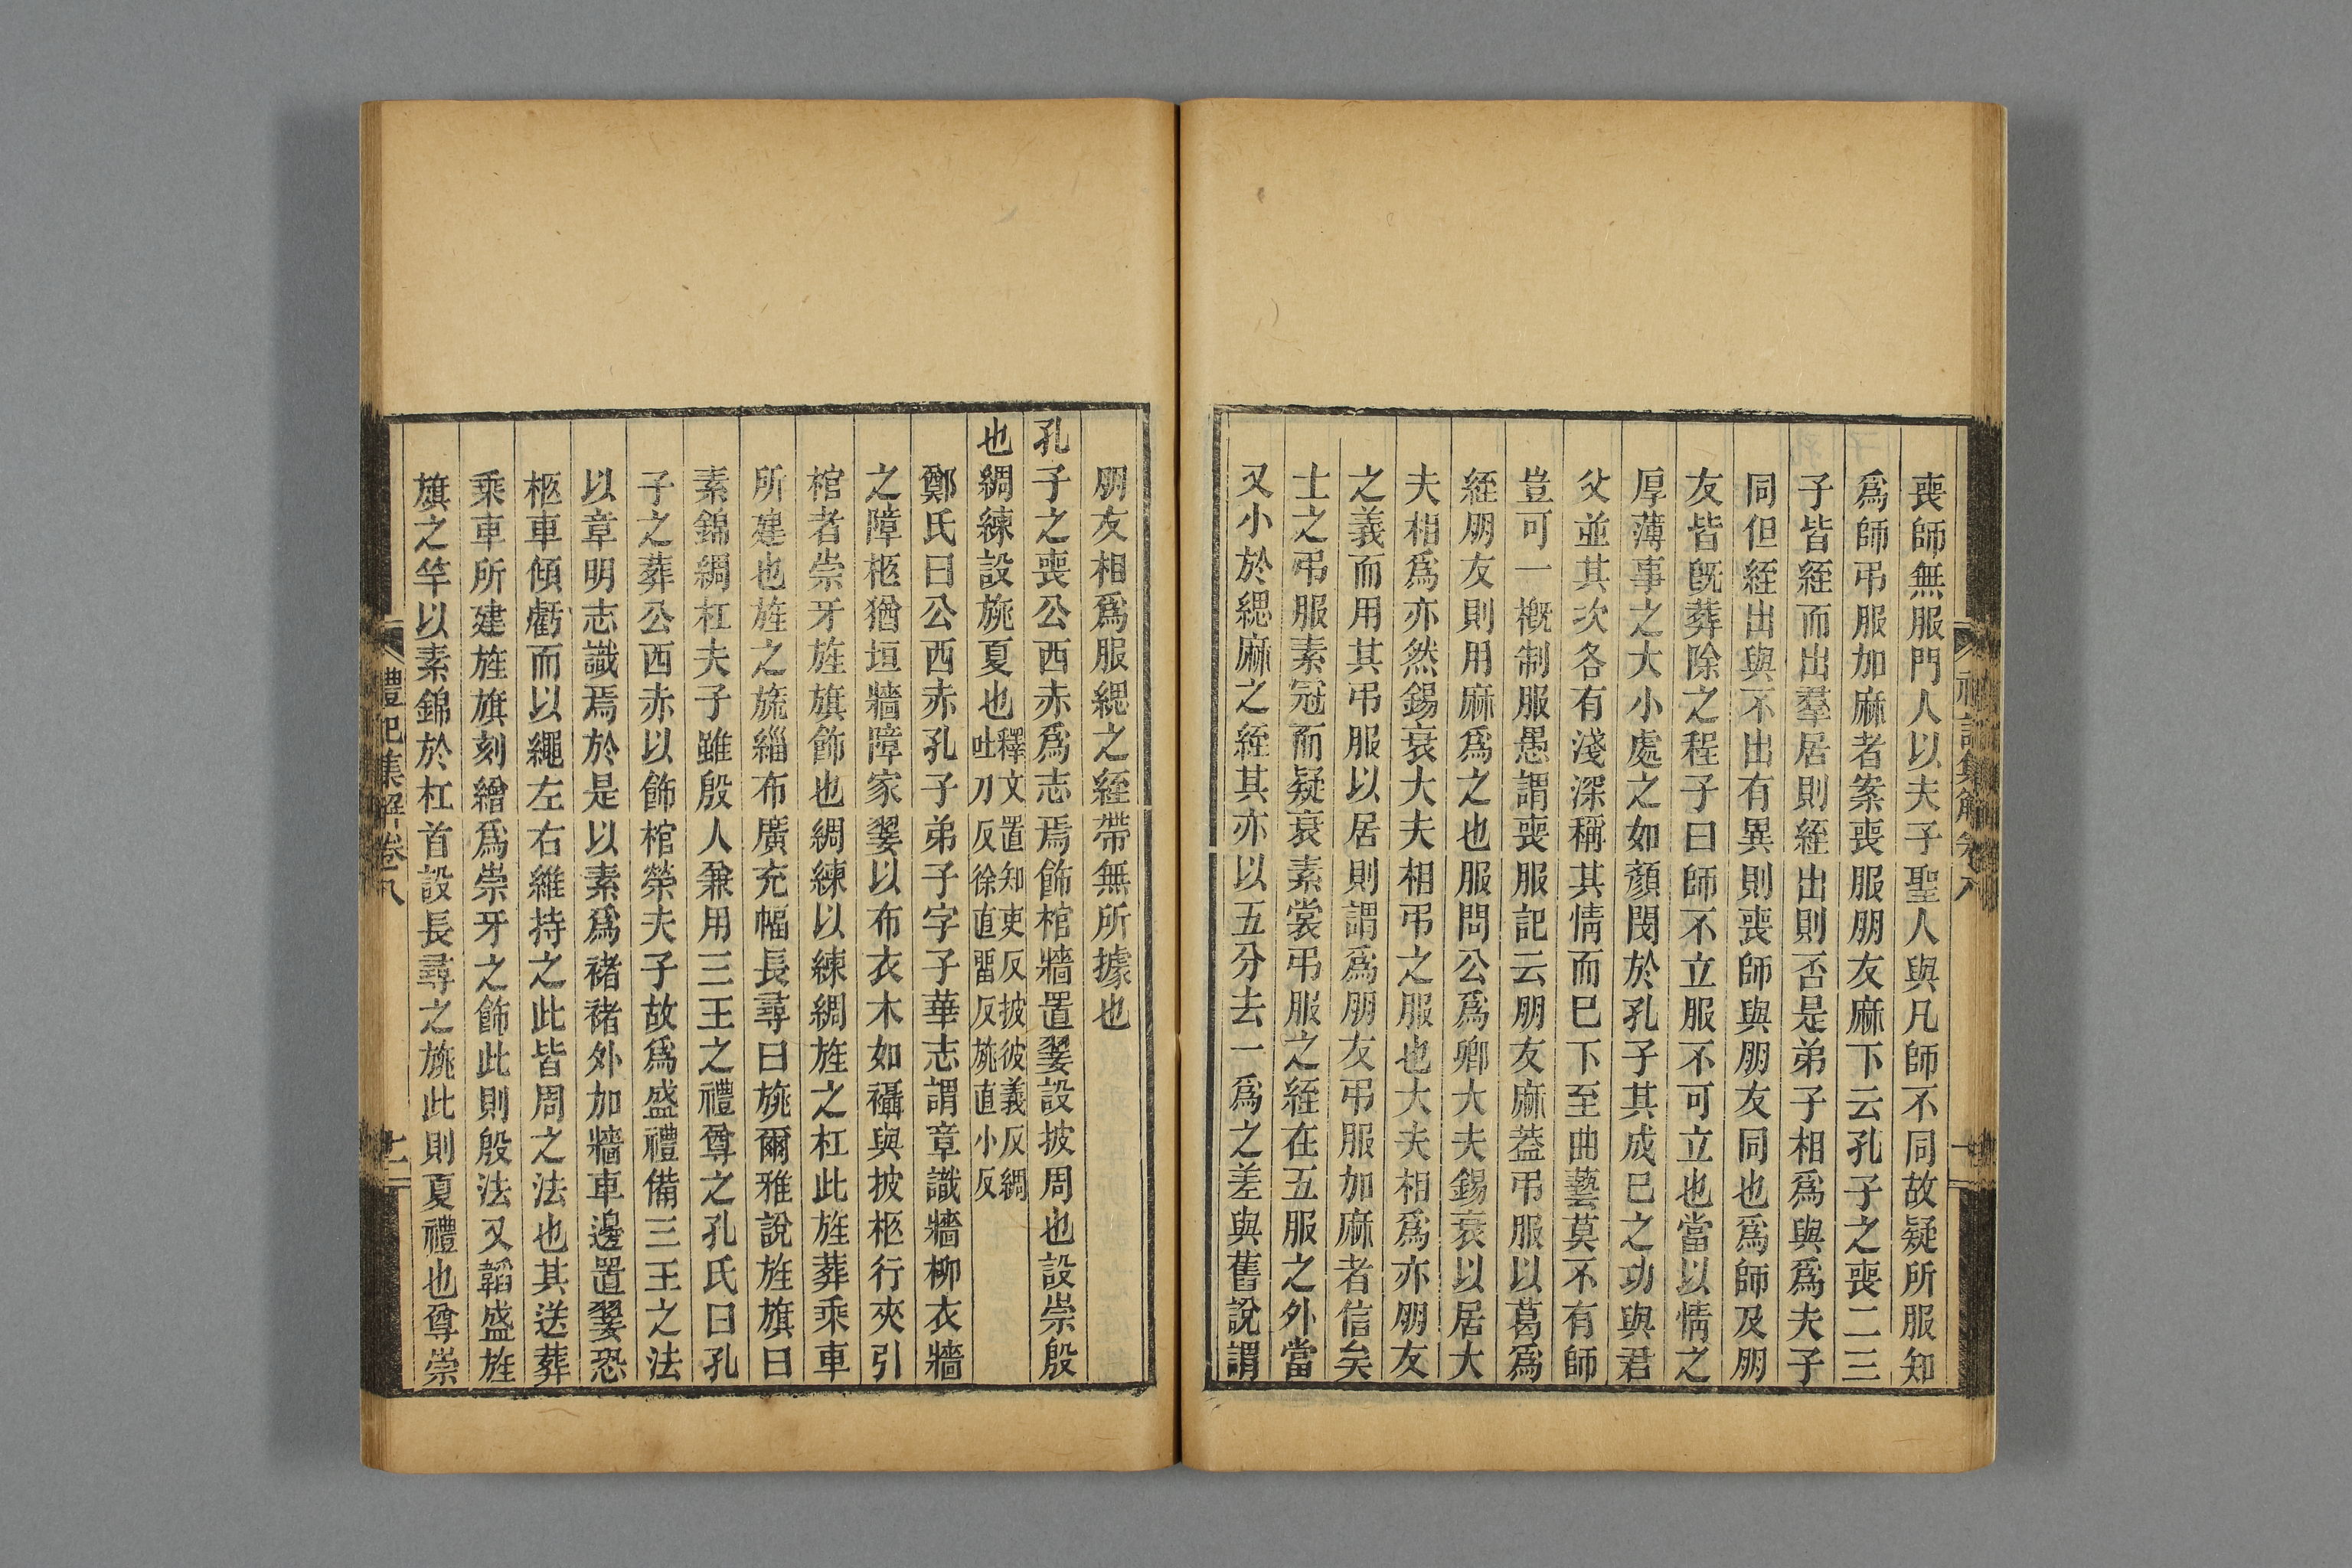 喪師無服門人以夫子聖人與凡師不同故疑所服知
爲師弔服加麻者案喪服朋友麻下云孔子之喪二三
子皆絰而出羣居則絰出則否是弟子相爲與爲夫子
同但絰出與不出有異則喪師與朋友同也爲師及朋
友皆旣葬除之程子曰師不立服不可立也當以情之
厚薄事之大小處之如顏閔於孔子其成已之功與君
父並其次各有淺深稱其情而巳下至曲藝莫不有師
豈可一槪制服愚謂喪服記云朋友麻葢弔服以葛爲
絰朋友則用麻爲之也服問公爲卿大夫錫衰以居大
夫相爲亦然錫衰大夫相弔之服也大夫相爲亦朋友
之義而用其弔服以居則謂爲朋友弔服加麻者信矣
士之弔服素冠而疑衰素裳弔服之絰在五服之外當
又小於緦麻之絰其亦以五分去一爲之差與舊說謂
朋友相爲服緦之絰帶無所據也
孔子之喪公西赤爲志焉飾棺牆置翣設披周也設崇殷
也綢練設旐夏也釋文置知吏反披彼義反綢
吐刀反徐直畱反旐直小反
鄭氏曰公西赤孔子弟子字子華志謂章識牆柳衣牆
之障柩猶垣牆障家翣以布衣木如襵與披柩行夾引
棺者崇牙旌旗飾也綢練以練綢旌之杠此旌葬乘車
所建也旌之旒緇布廣充幅長尋曰旐爾雅說旌旗曰
素錦綢杠夫子雖殷人兼用三王之禮尊之孔氏曰孔
子之葬公西赤以飾棺榮夫子故爲盛禮備三王之法
以章明志識焉於是以素爲褚褚外加牆車邊置翣恐
柩車傾虧而以繩左右維持之此皆周之法也其送葬
乘車所建旌旗刻繒爲崇牙之飾此則殷法又韜盛旌
旗之竿以素錦於杠首設長尋之旐此則夏禮也尊崇
禮記集解卷八